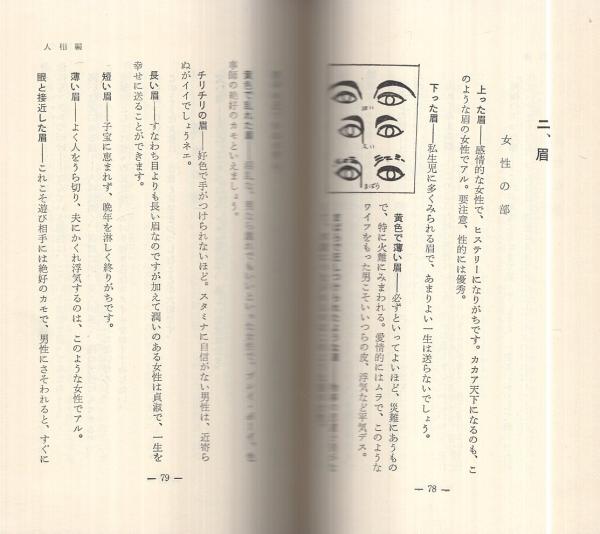 二、眉
女性の部
上った眉――感情的な女性で、ヒステリーになりがちです。カカア天下になるのも、こ
のような眉の女性でアル。要注意、性的には優秀。
下った眉――私生児に多くみられる眉で、あまりよい一生は送らないでしょう。
まばら
黄色で薄い眉――必ずといってよいほど、災難にあうもの
で、特に火難にみまわれる。愛情的にはムラで、このような
ワイフをもった男こそいいつらの皮、浮気など平気デス。
― 78 ―
人相編
黄色で乱れた眉
事師の絶好のカモといえましょう。
チリチリの眉――好色で手がつけられないほど。スタミナに自信がない男性は、近寄ら
ぬがイイでしょうネエ。
長い眉――すなわち目よりも長い眉なのですが加えて潤いのある女性は貞淑で、一生を
幸せに送ることができます。
短い眉――子宝に恵まれず、晩年を淋しく終りがちです。
薄い眉――よく人をうら切り、夫にかくれ浮気するのは、このような女性でアル。
眼と接近した眉――これこそ遊び相手には絶好のカモで、男性にさそわれると、すぐに
― 79 ―